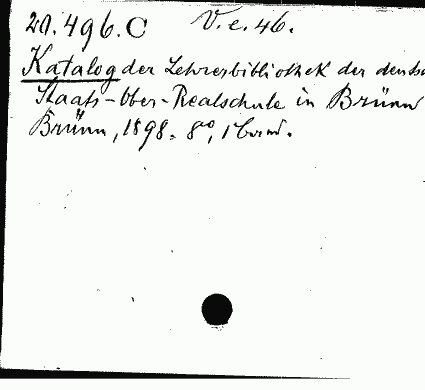 20.496.C V.e.46.
Katalog der Lehrerbibliothek der deutsc
Staats-Ober-Realschule in Brünn
Brünn, 1898. 8°, 1 Band.